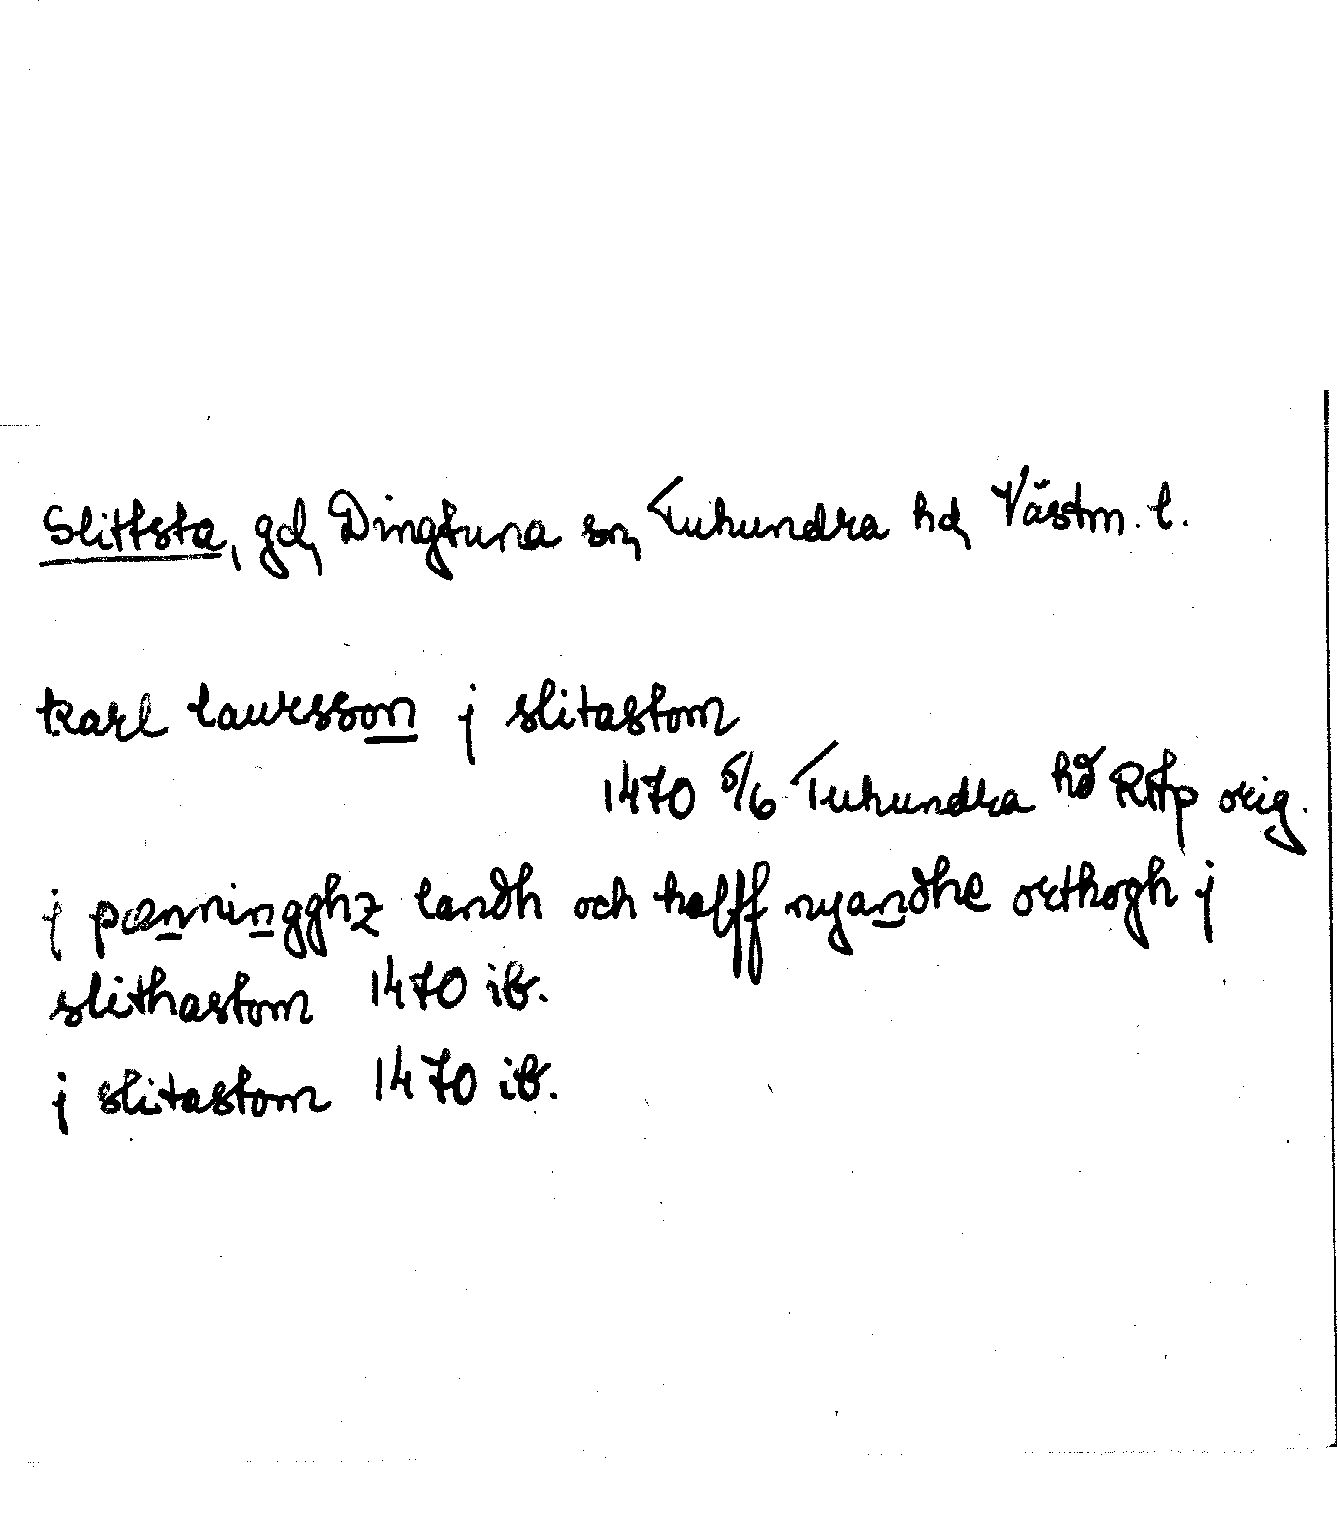 Slittsta, gd, Dingtuna sn, Tuhundra hd, Västm. l.
karl laursson j slitastom
1470 5/6 Tuhundra hd RAp orig.
j pænningghz landh och halff nyandhe orthogh j
slithastom 1470 ib.
j slitastom 1470 ib.